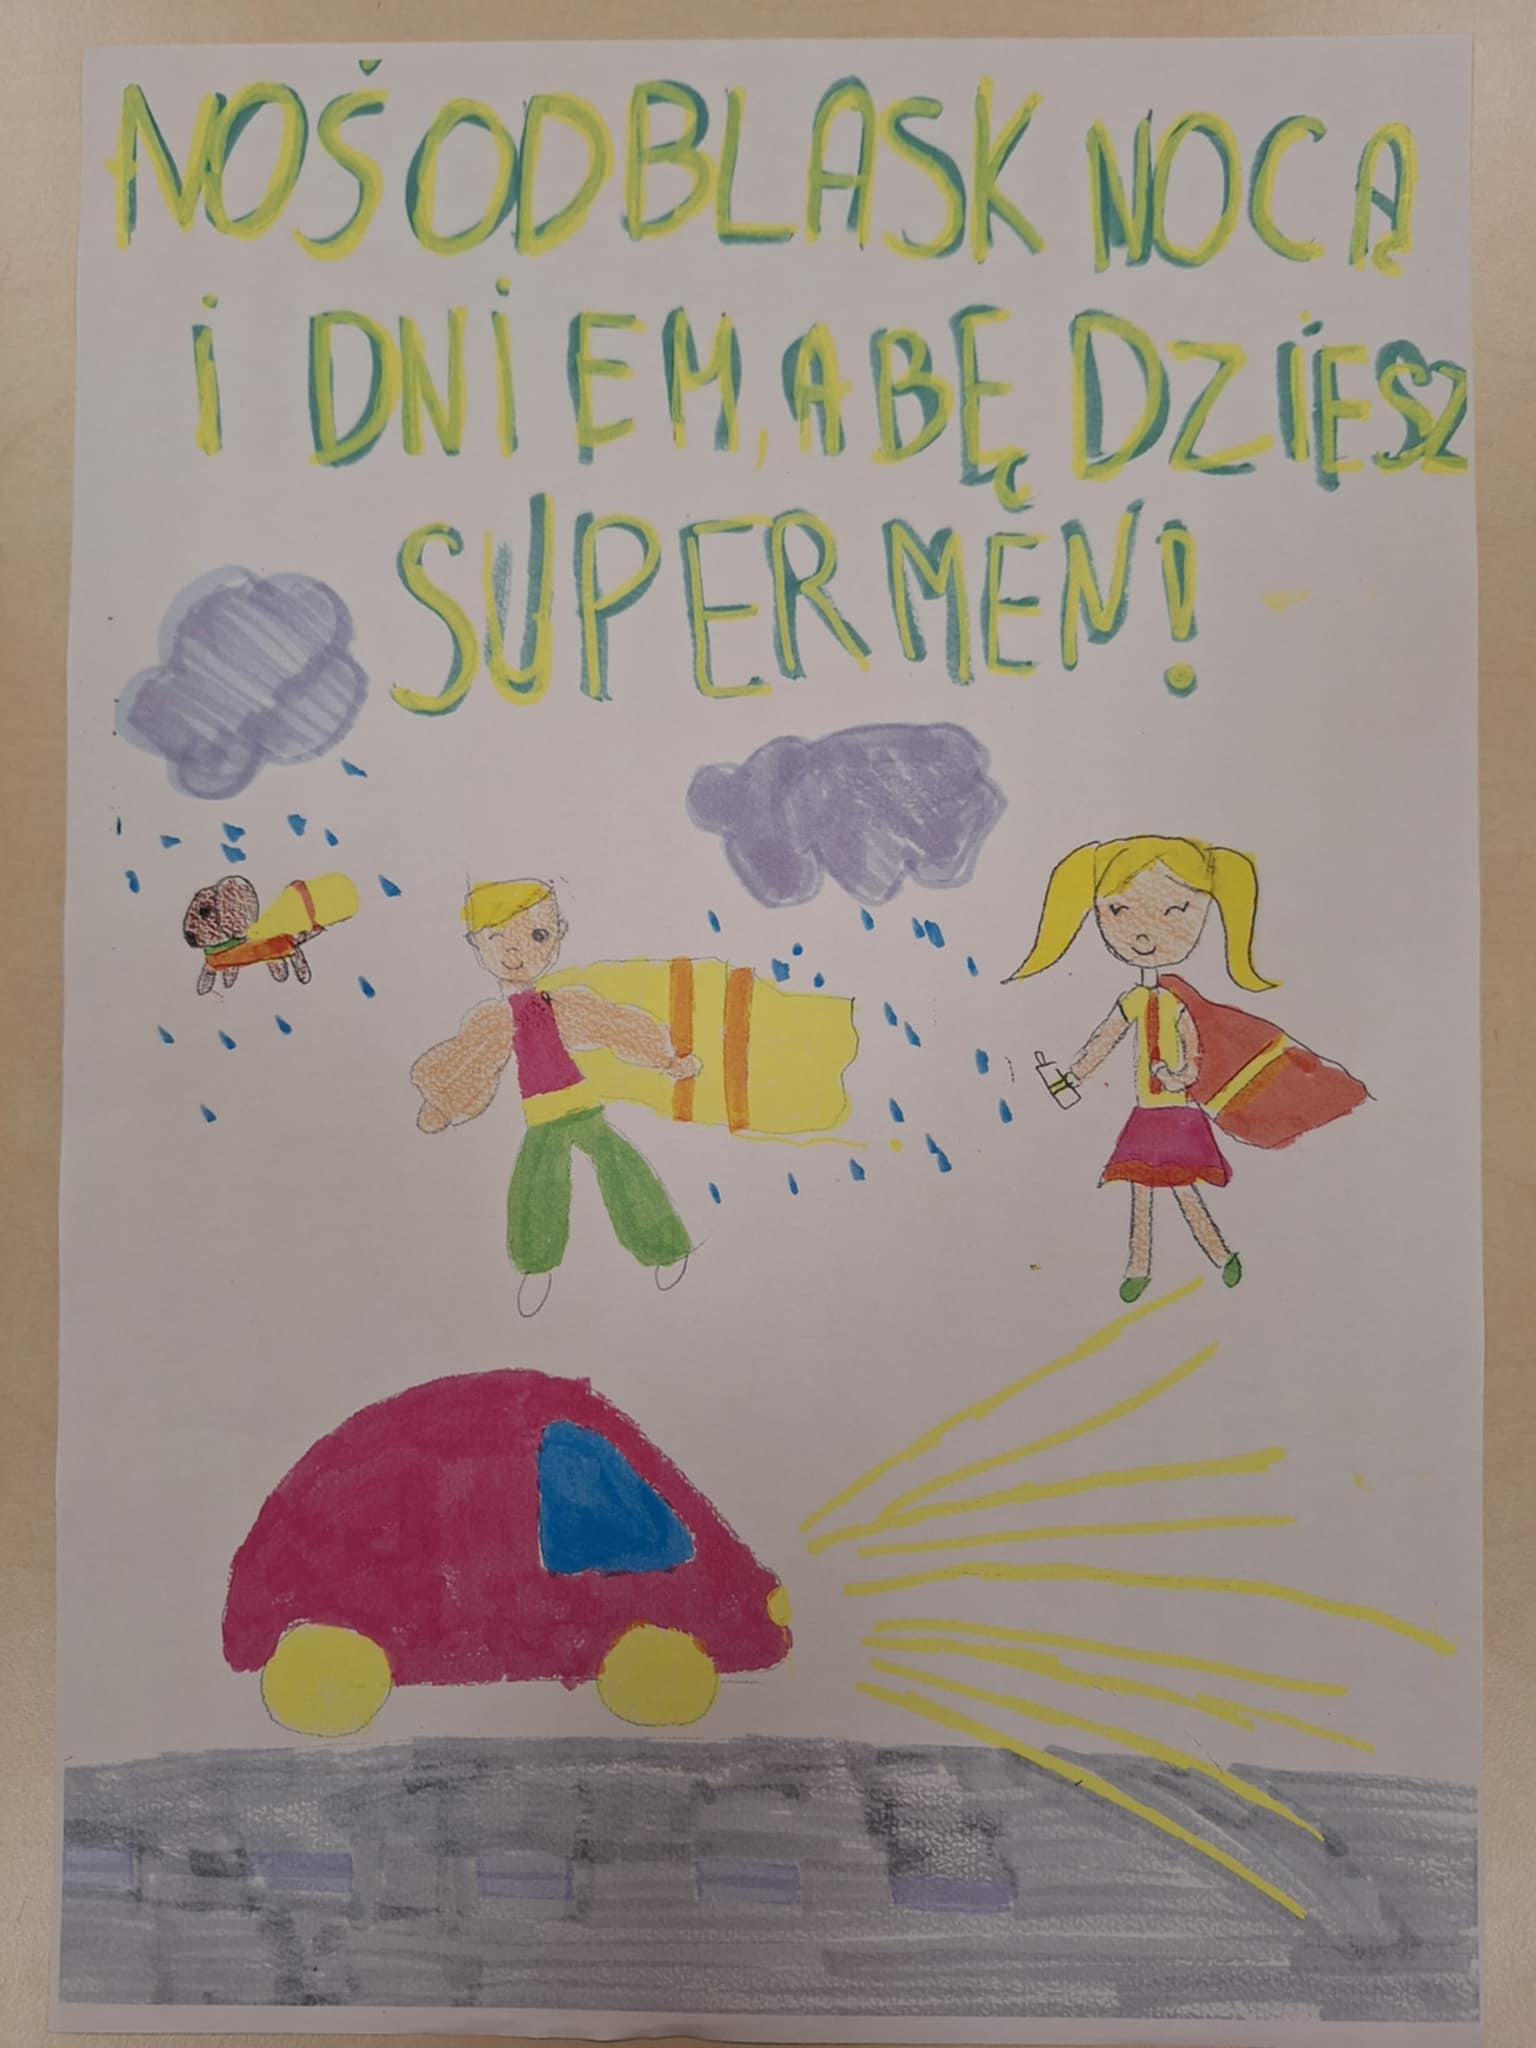 NOŚ ODBLASK NOCĄ
i DNiEM, A BĘDZiESZ
SUPERMEN!